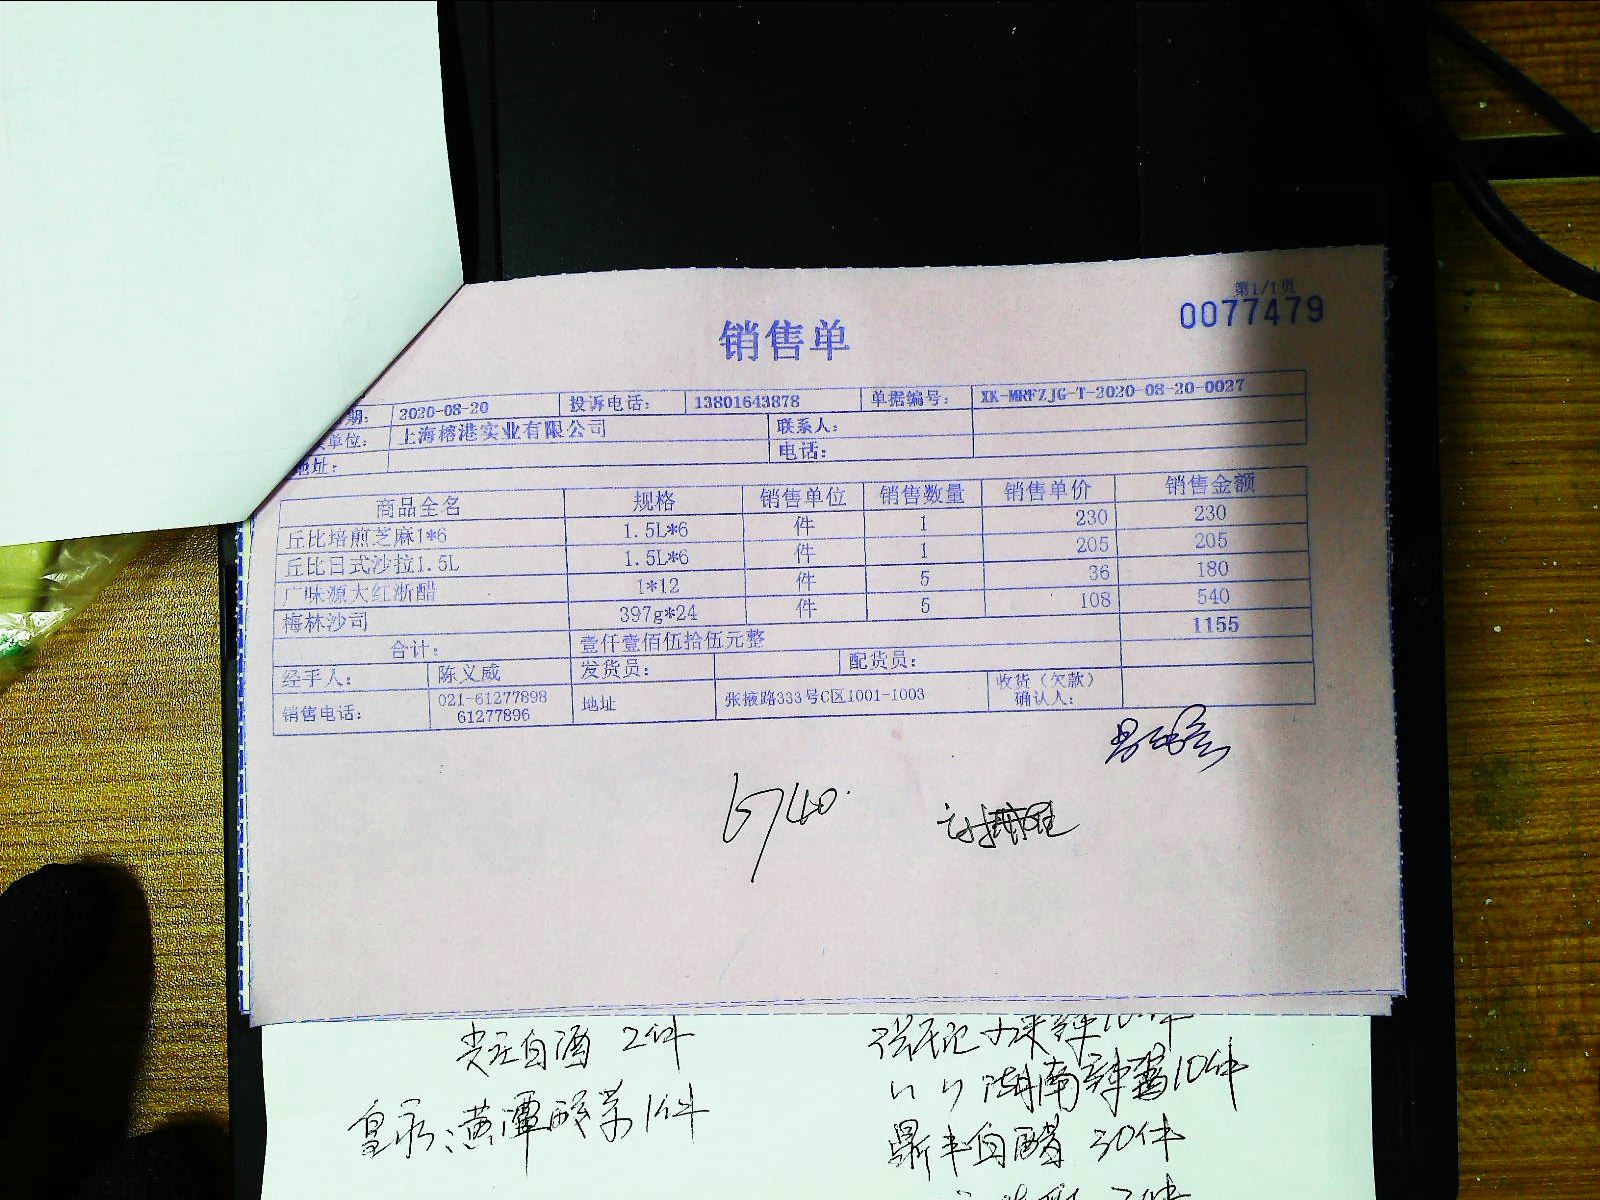 第1/1页
0077479
销售单
期： 2020-08-20 投诉电话： 13801643878 单据编号： XK-MRFZJG-T-2020-08-20-0027
单位： 上海榕港实业有限公司 联系人：
地址： 电话：
商品全名 规格 销售单位 销售数量 销售单价 销售金额
丘比培煎芝麻1*6 1.5L*6 件 1 230 230
丘比日式沙拉1.5L 1.5L*6 件 1 205 205
广味源大红浙醋 1*12 件 5 36 180
梅林沙司 397g*24 件 5 108 540
合计： 壹仟壹佰伍拾伍元整 1155
经手人： 陈义威 发货员： 配货员：
销售电话： 021-61277898 61277896 地址 张掖路333号C区1001-1003 收货（欠款）确认人：
白酒 2件
1件
湖南辣酱10件
白醋 30件